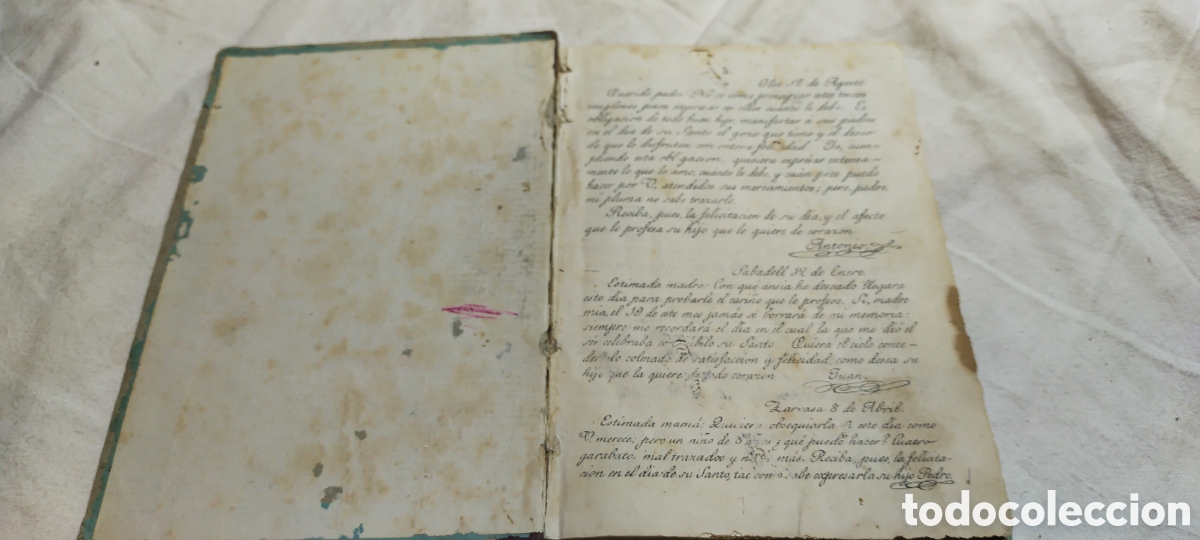 Olot 12 de Agosto
Querido padre: No sé cómo principiar estos toscos
renglones para expresar en ellos cuánto le debo. Es
obligacion de todo buen hijo, manifestar á sus padres
en el dia de su Santo el gozo que tiene y el deseo
de que lo disfruten con entera felicidad. Yo, cum-
pliendo esta obligacion, quisiera expresar extensa-
mente lo que le amo, cuánto le debo, y cuán poco puedo
hacer por V. atendidos sus merecimientos; pero, padre,
mi pluma no sabe trazarlo
Reciba, pues, la felicitacion de su dia, y el afecto
que le profesa su hijo que le quiere de corazon
Antonio
Sabadell 12 de Enero.
Estimada madre: Con qué ansia he deseado llegara
este dia para probarle el cariño que le profeso. Si, madre
mia, el 12 de este mes jamás se borrará de mi memoria:
siempre me recordará el dia en el cual la que me dió el
ser celebraba con júbilo su Santo. Quiera el cielo conce-
derselo colmado de satisfaccion y felicidad, como desea su
hijo que la quiere de todo corazon Juan
Tarrasa 8 de Abril.
Estimada mamá: Quisiera obsequiarla en este dia como
V. merece; pero un niño de 8 años ¿qué puede hacer? Cuatro
garabatos mal trazados y nada más. Reciba, pues, la felicita-
cion en el dia de su Santo, tal como sabe expresarla su hijo Pedro.
todocoleccion